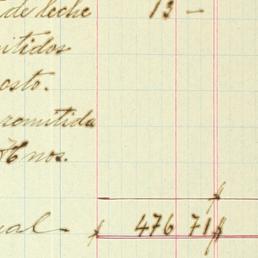 de leche 13 -
itidos
osto.
romitida
H nos.
ual 476 71